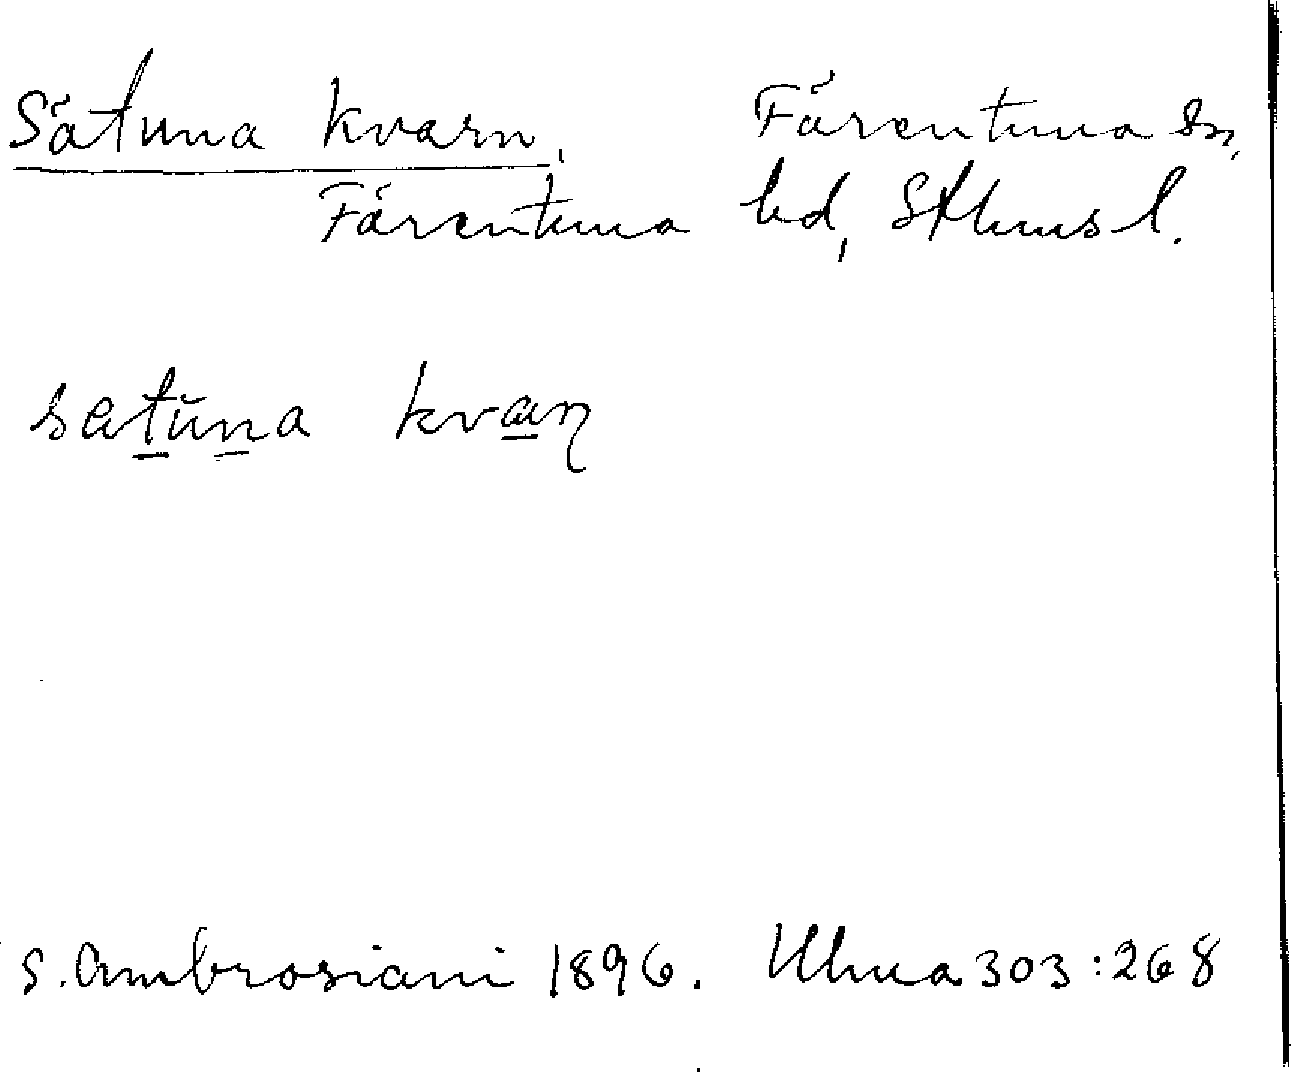 Sätuna kvarn. Färentuna sn,
Färentuna hd, Sthms l.
satŭna kvaṇ
S. Ambrosiani 1896. Ulma 303:268